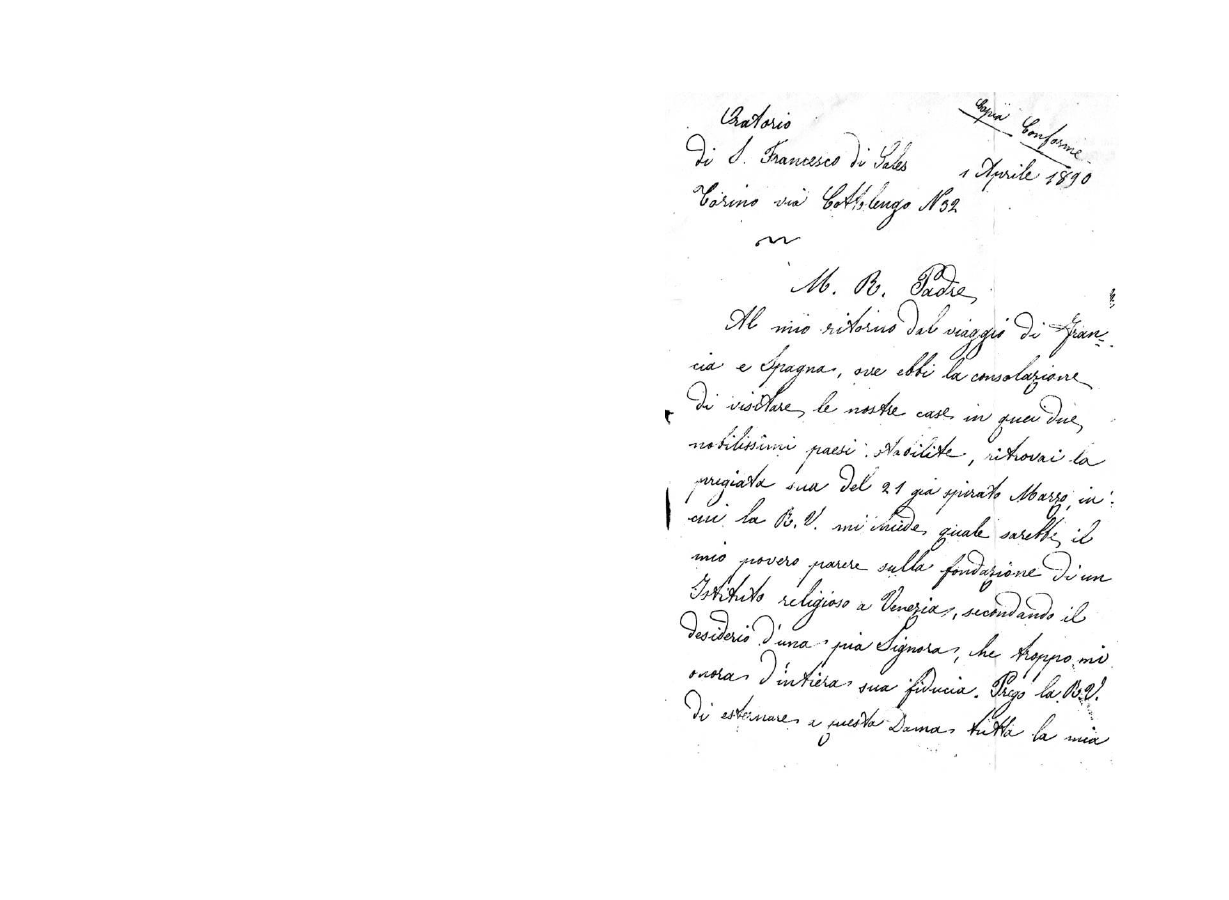 Copia Conforme
Oratorio
di S. Francesco di Sales
1 Aprile 1890
Torino via Cottolengo N 32
M. R. Padre
Al mio ritorno dal viaggio di Fran-
cia e Spagna, ove ebbi la consolazione
di visitare le nostre case in quei due
nobilissimi paesi stabilite, ritrovai la
pregiata sua del 21 già spirato Marzo, in
cui la R. V. mi chiede quale sarebbe il
mio povero parere sulla fondazione d'un
Istituto religioso a Venezia, secondando il
desiderio d'una pia Signora, che troppo mi
onora d'intiera sua fiducia. Prego la R. V.
di esternare a questa Dama tutta la mia